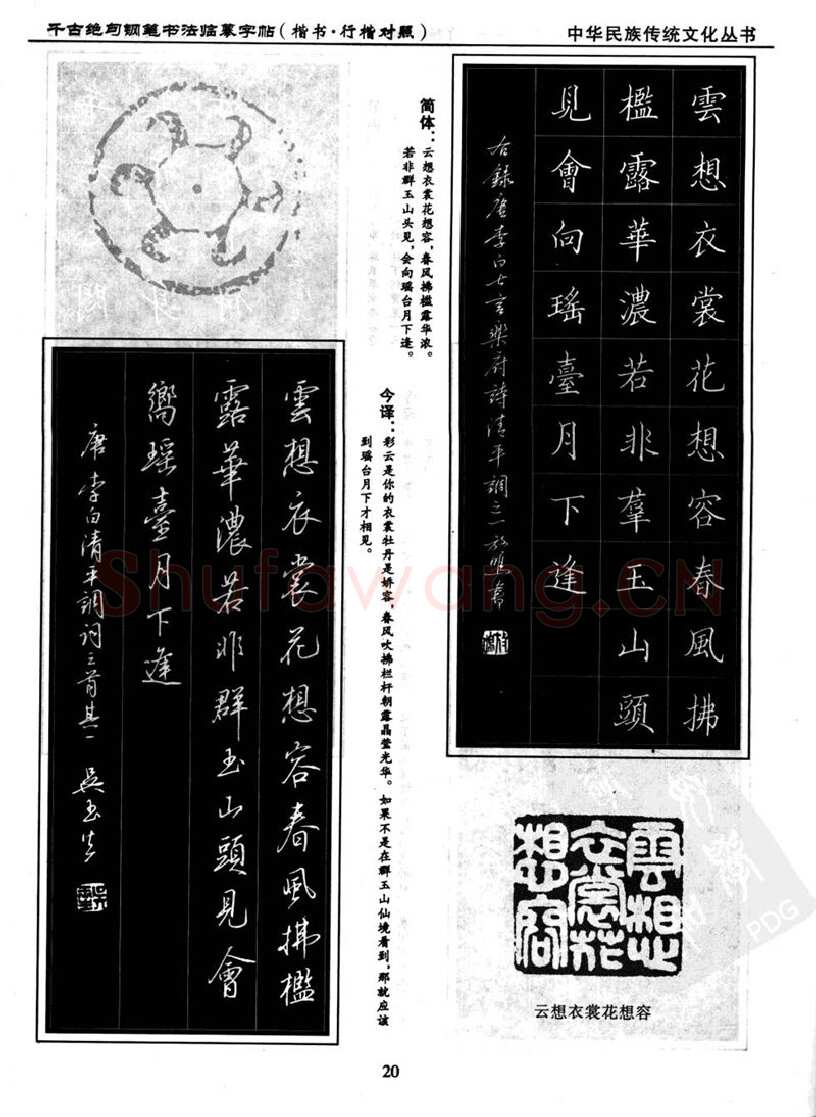 千古绝句钢笔书法临摹字帖（楷书·行楷对照）
中华民族传统文化丛书
雲想衣裳花想容春風拂
檻露華濃若非羣玉山頭
見會向瑶臺月下逢
右錄唐李白七言樂府詩清平調之一
简体：云想衣裳花想容，春风拂槛露华浓。
若非群玉山头见，会向瑶台月下逢。
今译：彩云是你的衣裳牡丹是娇容，春风吹拂栏杆朝露晶莹光华。如果不是在群玉山仙境看到，那就应该
到瑶台月下才相见。
雲想衣裳花想容春風拂檻
露華濃若非群玉山頭見會
嚮瑶臺月下逢
唐李白清平調词三首其一 吴玉生
雲想
衣裳花
想容
云想衣裳花想容
20
Shufawang.CN
PDG